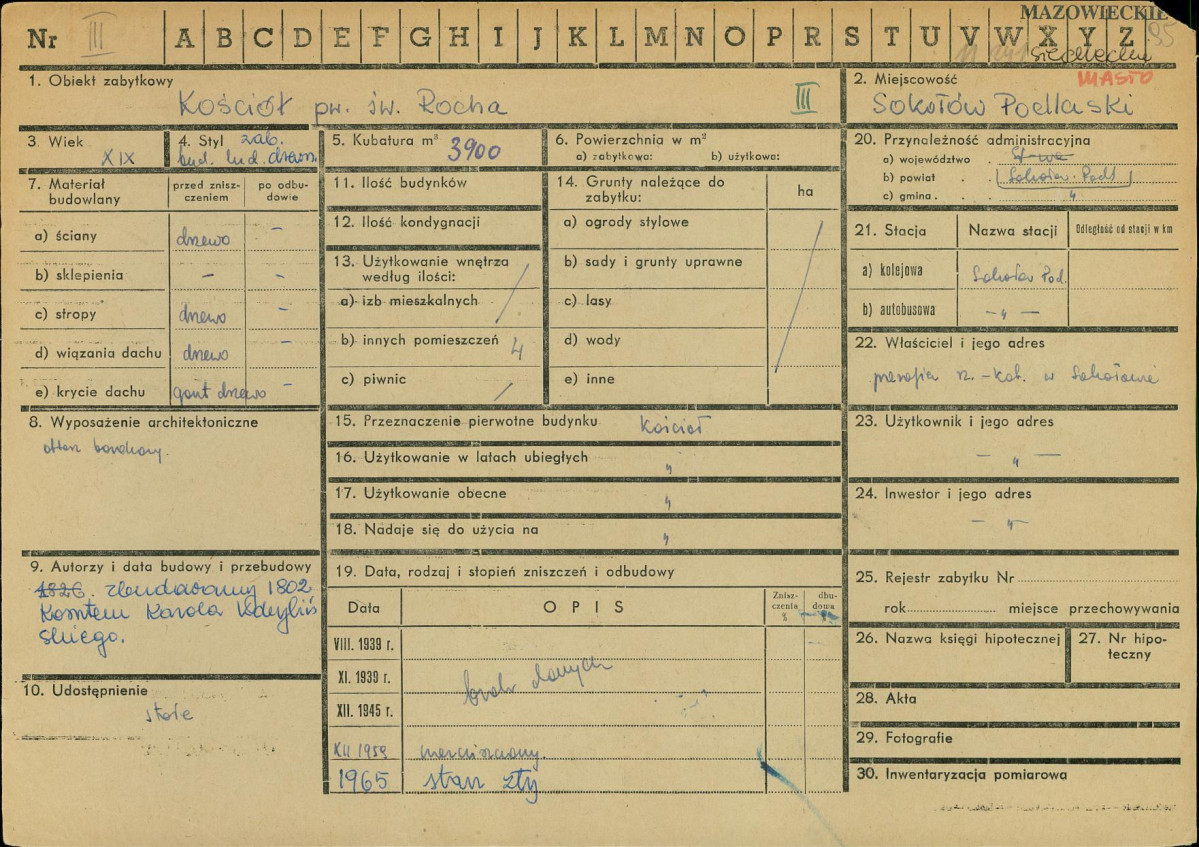 MAZOWIECKIE
Nr III A B C D E F G H I J K L M N O P R S T U V W X Y Z
MIASTO
1. Obiekt zabytkowy
Kościół pw. św. Rocha III
2. Miejscowość
Sokołów Podlaski
3. Wiek
XIX
4. Styl zab.
bud. lud. drewn.
5. Kubatura m³ 3900
6. Powierzchnia w m²
a) zabytkowa: b) użytkowa:
7. Materiał budowlany
przed zniszczeniem
po odbudowie
a) ściany drzewo –
b) sklepienia – –
c) stropy drzewo –
d) wiązania dachu drzewo –
e) krycie dachu gont drzewo –
8. Wyposażenie architektoniczne
ołtarz barokowy.
9. Autorzy i data budowy i przebudowy
1826. zbudowany 1802
Kosztem Karola
skiego.
10. Udostępnienie
stałe
11. Ilość budynków
12. Ilość kondygnacji
13. Użytkowanie wnętrza
według ilości:
a) izb mieszkalnych
b) innych pomieszczeń 4
c) piwnic
14. Grunty należące do
zabytku:
ha
a) ogrody stylowe
b) sady i grunty uprawne
c) lasy
d) wody
e) inne
15. Przeznaczenie pierwotne budynku Kościół
16. Użytkowanie w latach ubiegłych "
17. Użytkowanie obecne "
18. Nadaje się do użycia na "
19. Data, rodzaj i stopień zniszczeń i odbudowy
Data OPIS Zniszczenia % dbudowa %
VIII. 1939 r.
XI. 1939 r. brak danych
XII. 1945 r.
XII 1959 nieruszony.
1965 stan zły
20. Przynależność administracyjna
a) województwo
b) powiat Sokołów Podl
c) gmina "
21. Stacja Nazwa stacji Odległość od stacji w km
a) kolejowa Sokołów Pod.
b) autobusowa – " –
22. Właściciel i jego adres
parafia rz.-kat. w Sokołowie
23. Użytkownik i jego adres
– " –
24. Inwestor i jego adres
– " –
25. Rejestr zabytku Nr
rok miejsce przechowywania
26. Nazwa księgi hipotecznej
27. Nr hipoteczny
28. Akta
29. Fotografie
30. Inwentaryzacja pomiarowa